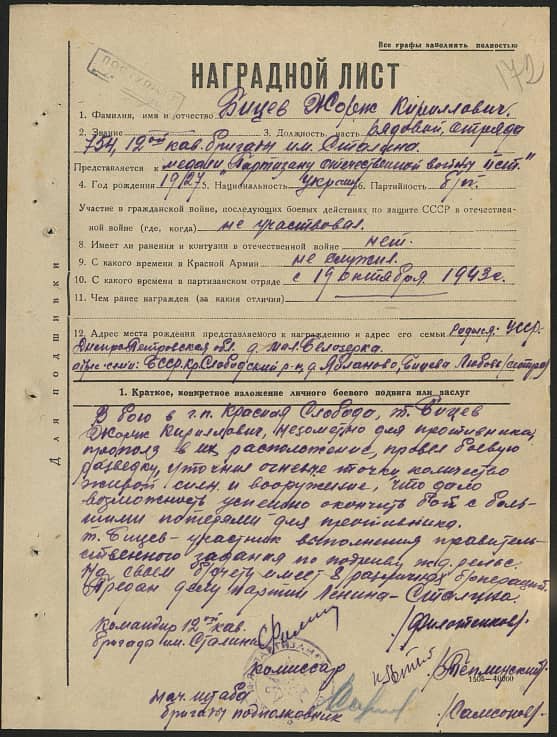 Все графы заполнять полностью
172
НАГРАДНОЙ ЛИСТ
1. Фамилия, имя и отчество Бицев Жорж Кириллович.
2. Звание 3. Должность, часть рядовой, отряда
754, 12ой кав. бригады им. Сталина.
Представляется к медали "Партизану отечественной войны II ст."
4. Год рождения 1927 5. Национальность укр. 6. Партийность б/п.
Участие в гражданской войне, последующих боевых действиях по защите СССР в отечествен-
ной войне (где, когда) не участвовал.
8. Имеет ли ранения и контузии в отечественной войне нет.
9. С какого времени в Красной Армии не служил.
10. С какого времени в партизанском отряде с 19 октября 1943 г.
11. Чем ранее награжден (за какия отличия)
12. Адрес места рождения представляемого к награждению и адрес его семьи Родился: УССР
Днепропетровская обл. д. мал. Белозерка.
БССР, Кр. Слободский р-н, д. Бицева Любовь (сестра)
Для подшивки
1. Краткое, конкретное изложение личного боевого подвига или заслуг
В бою в г.п. Красная Слобода, т. Бицев
Жорж Кириллович, незаметно для противника,
прополз в их расположение, провел боевую
разведку, уточнил огневые точки, количество
живой силы и вооружение, что дало
возможность успешно окончить бой с боль-
шими потерями для противника.
т. Бицев - участник выполнения правитель-
ственного задания по подрыву ж.д. рельс.
На своем б/счету имеет 8 различных б/операций.
Предан делу партии Ленина-Сталина.
Командир 12ой кав.
бригады им. Сталина /Филотенков/
комиссар
нач. штаба
бригады подполковник /Самсонов/
1505-40000